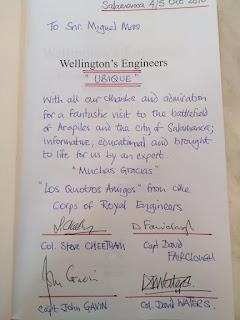 Salamanca 4/5 Oct 2010
To Snr. Miguel
Wellington's Engineers
"UBIQUE"
With all our thanks and admiration
for a fantastic visit to the battlefield
of Arapiles and the city of Salamanca;
informative, educational and brought
to life for us by an expert
"Muchas Gracias"
"Los Quatros Amigos" from the
Corps of Royal Engineers
Col. Steve CHEETHAM
Capt David
FAIRCLOUGH
John Gavin
D Waters
Capt John GAVIN
Col. David WATERS.